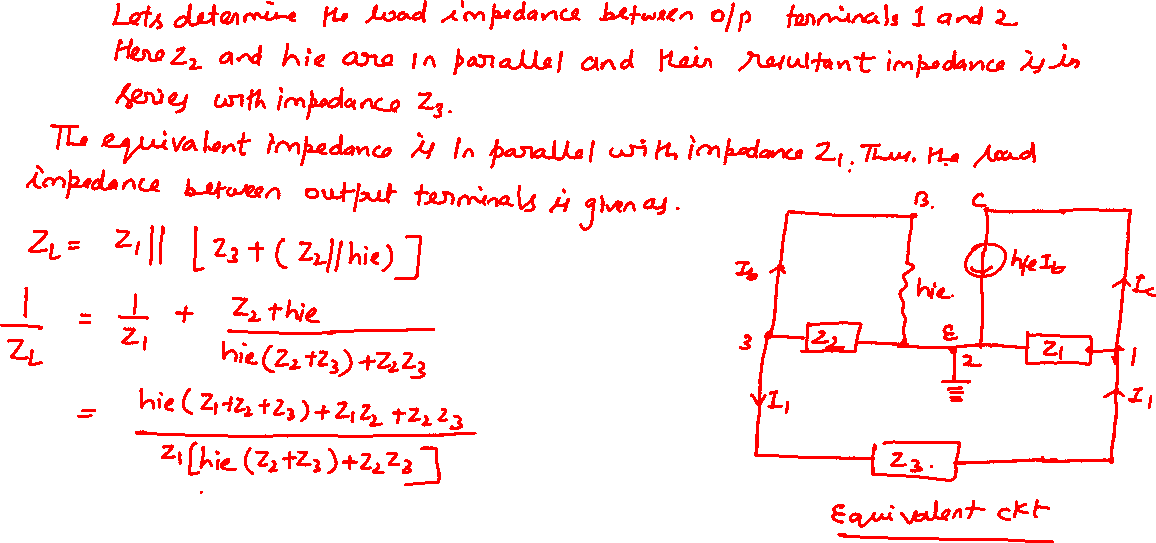 Lets determine the load impedance between o/p terminals 1 and 2
Here Z₂ and hie are in parallel and their resultant impedance is in
series with impedance Z₃.
The equivalent impedance is in parallel with impedance Z₁. Thus. the load
impedance between output terminals is given as.
Z_L = Z₁ || [ Z₃ + ( Z₂ || hie) ]
1/Z_L = 1/Z₁ + (Z₂ + hie)/(hie(Z₂+Z₃)+Z₂Z₃)
= (hie(Z₁+Z₂+Z₃)+Z₁Z₂+Z₂Z₃)/(Z₁[hie(Z₂+Z₃)+Z₂Z₃])
B. C
I_b hie. hfe I_b I_c
3 Z₂ E 2 Z₁ 1
I₁ I₁
Z₃.
Equivalent ckt